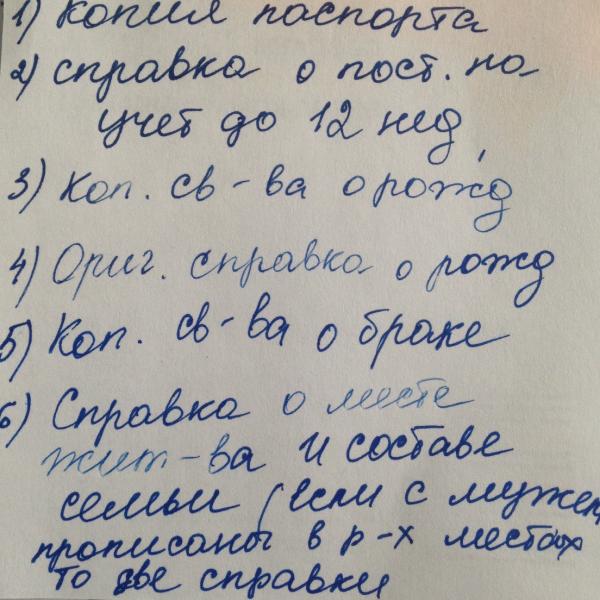 1) копия паспорта
2) справка о пост. на
учет до 12 нед,
3) коп. св-ва о рожд
4) Ориг. справка о рожд
5) Коп. св-ва о браке
6) Справка о месте
жит-ва и составе
семьи (если с мужем
прописаны в р-х местах
то две справки